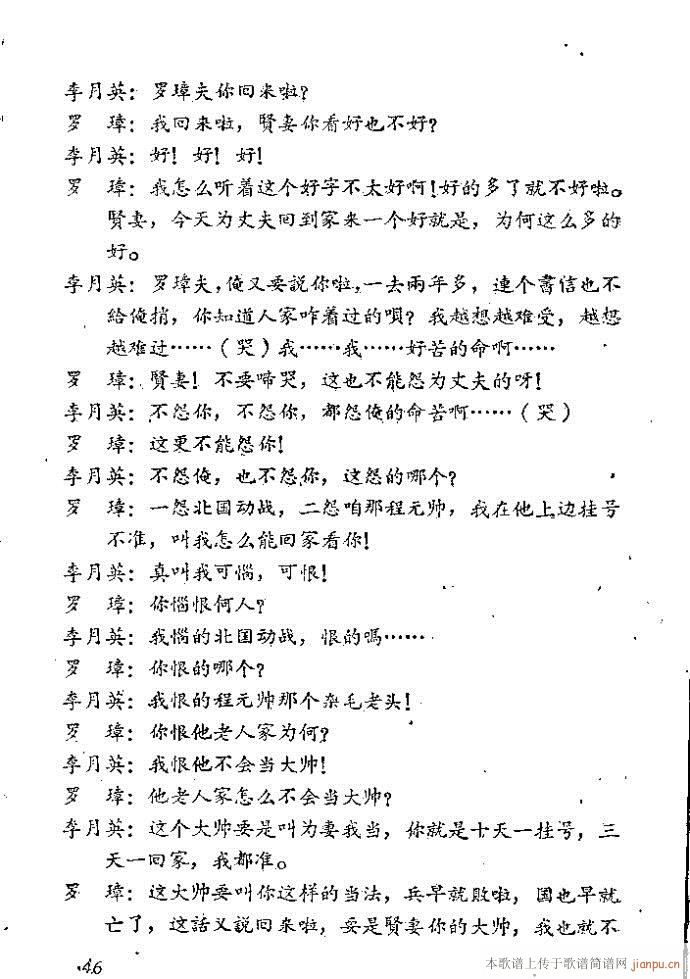 李月英：罗璋夫你回来啦？
罗　璋：我回来啦，賢妻你看好也不好？
李月英：好！好！好！
罗　璋：我怎么听着这个好字不太好啊！好的多了就不好啦。
賢妻，今天为丈夫回到家来一个好就是，为何这么多的
好。
李月英：罗璋夫，俺又要說你啦，一去兩年多，連个書信也不
給俺捎，你知道人家咋着过的唄？我越想越难受，越想
越难过……（哭）我……我……好苦的命啊……
罗　璋：賢妻！不要啼哭，这也不能怨为丈夫的呀！
李月英：不怨你，不怨你，都怨俺的命苦啊……（哭）
罗　璋：这更不能怨你！
李月英：不怨俺，也不怨你，这怨的哪个？
罗　璋：一怨北国动战，二怨咱那程元帅，我在他上边挂号
不准，叫我怎么能回家看你！
李月英：真叫我可惱，可恨！
罗　璋：你惱恨何人？
李月英：我惱的北国动战，恨的嗎……
罗　璋：你恨的哪个？
李月英：我恨的程元帅那个杂毛老头！
罗　璋：你恨他老人家为何？
李月英：我恨他不会当大帅！
罗　璋：他老人家怎么不会当大帅？
李月英：这个大帅要是叫为妻我当，你就是十天一挂号，三
天一回家，我都准。
罗　璋：这大帅要叫你这样的当法，兵早就敗啦，国也早就
亡了，这話又說回来啦，要是賢妻你的大帅，我也就不
46
本歌谱上传于歌谱简谱网
jianpu.cn